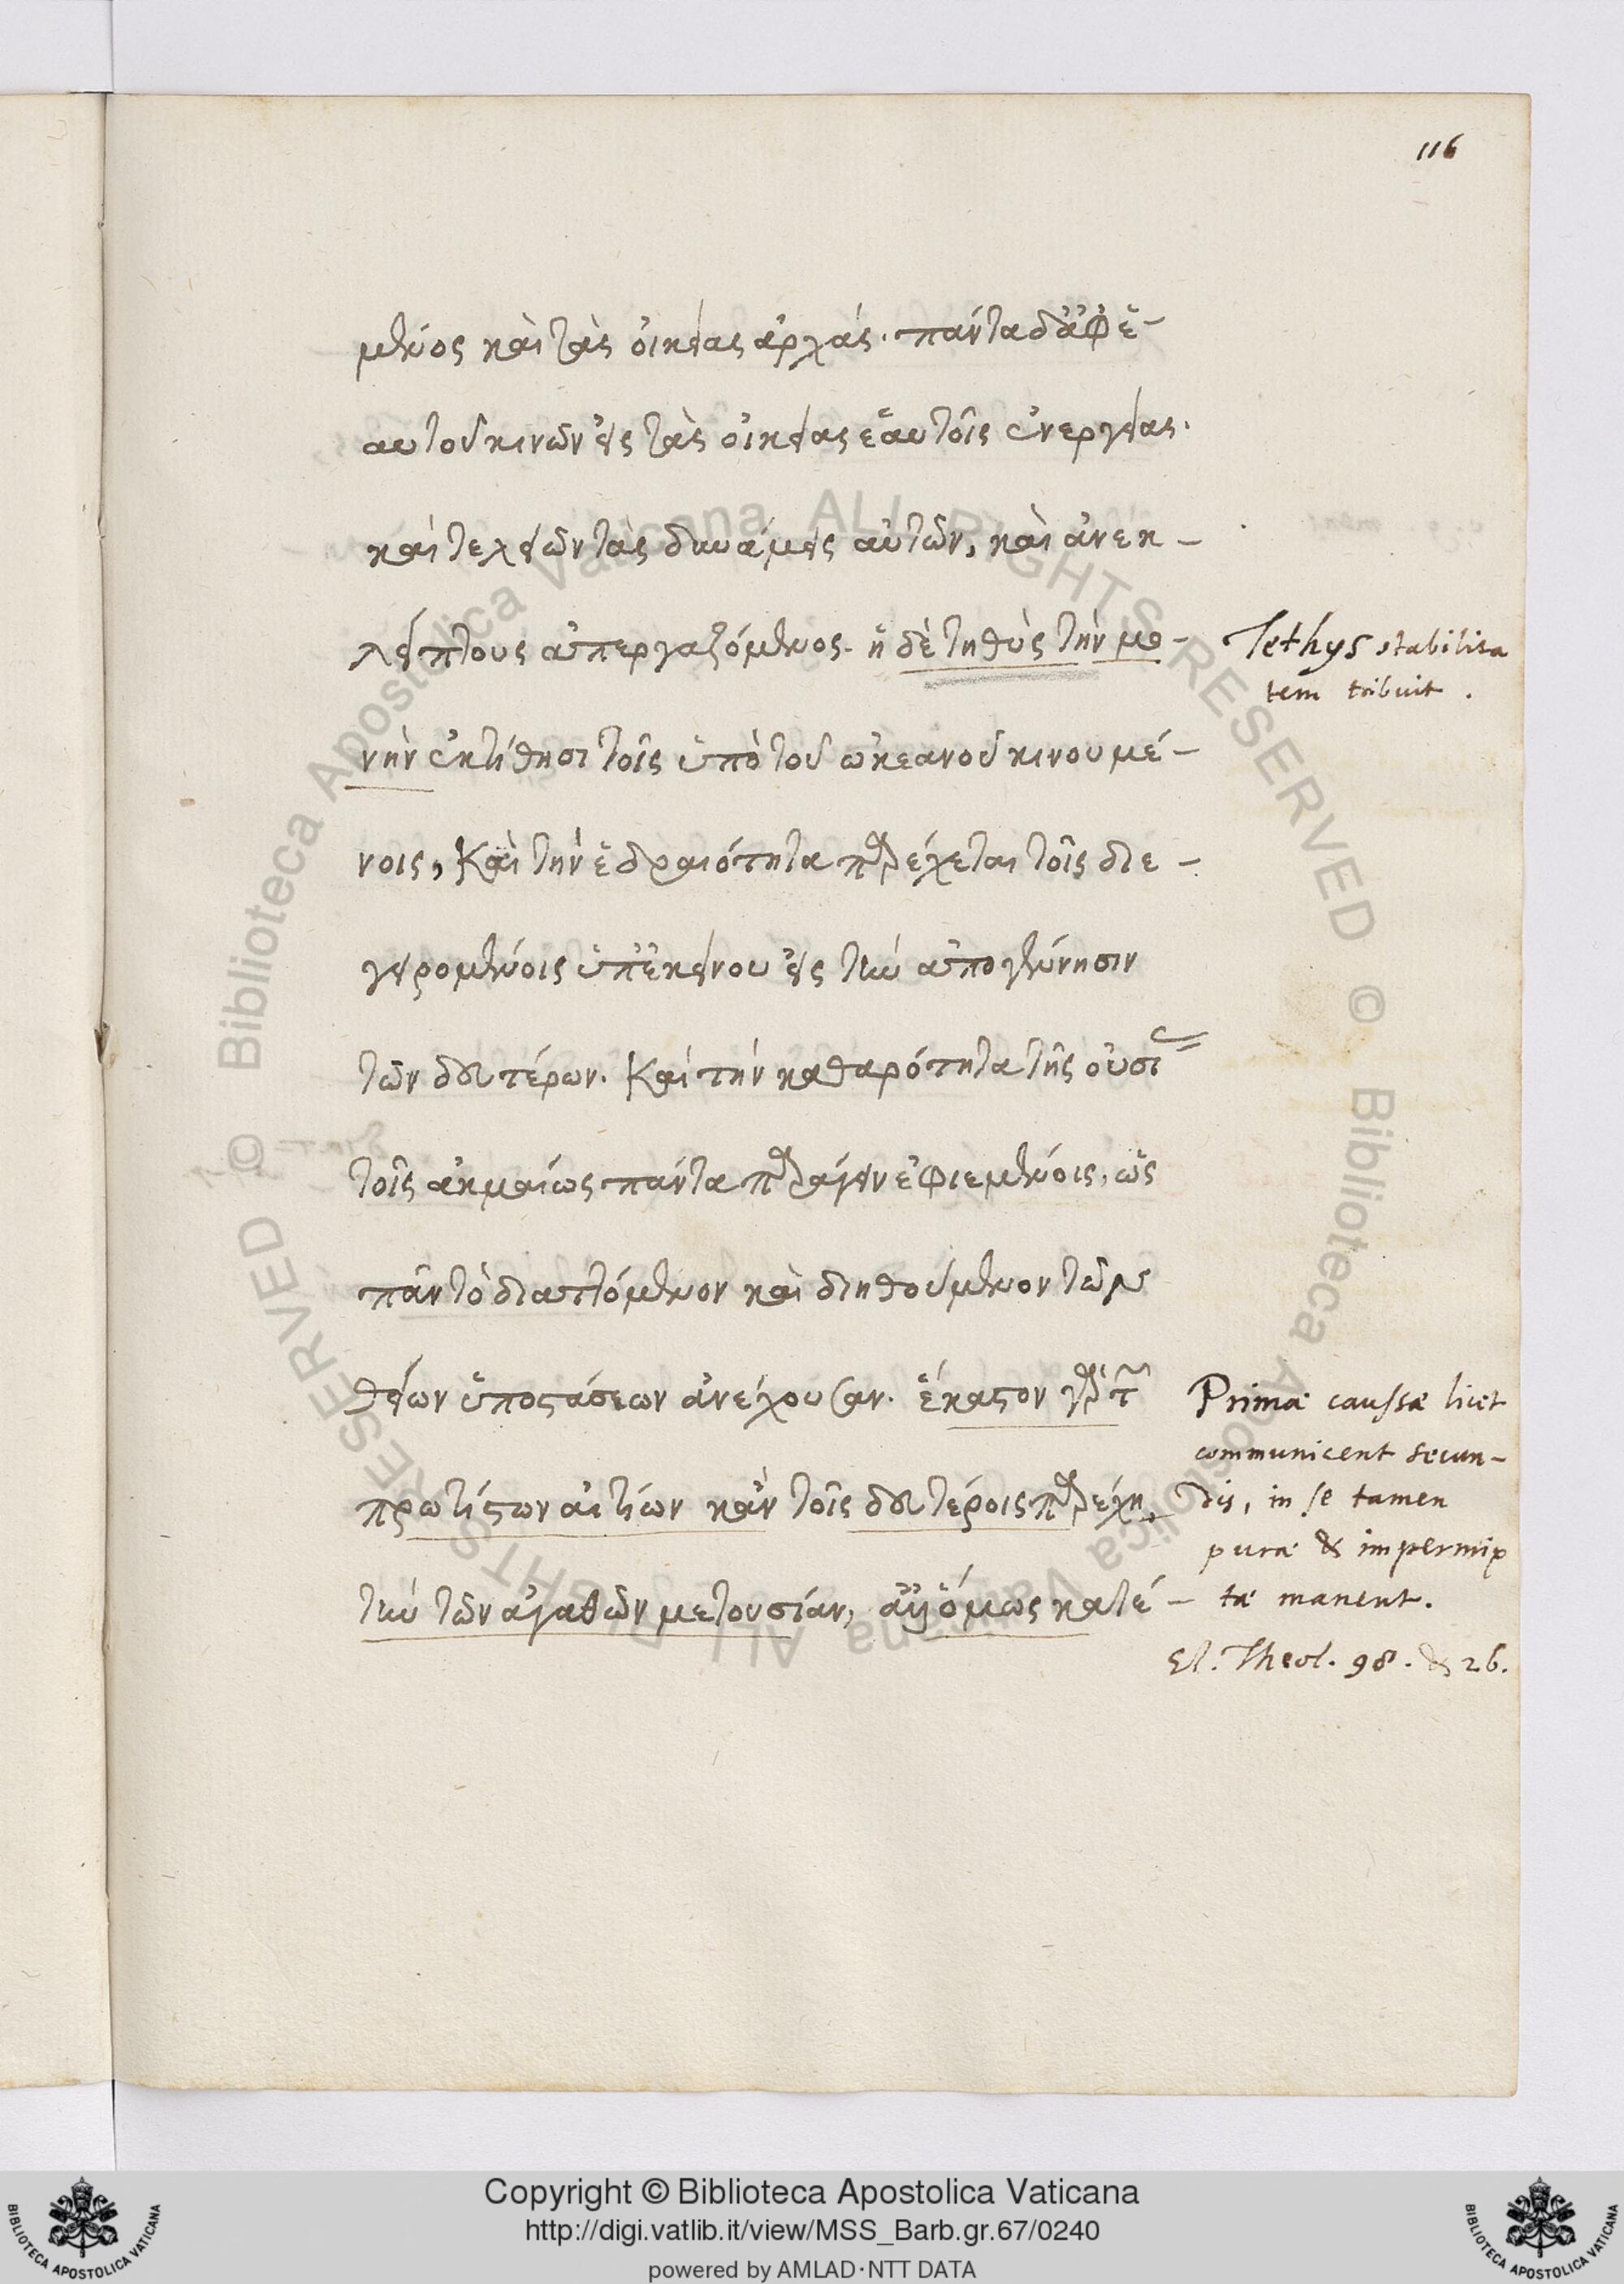 116
μενος καὶ τὰς οἰκείας ἀρχάς. πάντα δ' ἀφ' ἑ-
αυτοῦ κινῶν εἰς τὰς οἰκείας ἑαυτοῖς ἐνεργείας.
καὶ τελειῶν τὰς δυνάμεις αὐτῶν, καὶ ἀνεκ-
λείπτους ἀπεργαζόμενος. ἡ δὲ τηθὺς τὴν μο-
νὴν ἐντίθησι τοῖς ὑπὸ τοῦ ὠκεανοῦ κινουμέ-
νοις, καὶ τὴν ἑδραιότητα παρέχεται τοῖς διε-
γειρομένοις ὑπ' ἐκείνου εἰς τὴν ἀπογέννησιν
τῶν δευτέρων. καὶ τὴν καθαρότητα τῆς οὐσίας
τοῖς ἀκμαίως πάντα παράγειν ἐφιεμένοις, ὡς
πᾶν τὸ διαττόμενον καὶ διηθούμενον τῶν
θείων ὑποστάσεων ἀνέχουσαν. ἕκαστον γὰρ τῶν
πρωτίστων αἰτίων κἂν τοῖς δευτέροις παρέχῃ
τὴν τῶν ἀγαθῶν μετουσίαν, ἀλλ' ὅμως κατέ-
Tethys stabilita
tem tribuit.
Primæ caussæ licet
communicent secun-
dis, in se tamen
puræ & impermix
tæ manent.
El. Theol. 98. & 26.
© Biblioteca Apostolica Vaticana ALL RIGHTS RESERVED © Biblioteca Apostolica Vaticana ALL RIGHTS RESERVED
Copyright © Biblioteca Apostolica Vaticana
http://digi.vatlib.it/view/MSS_Barb.gr.67/0240
powered by AMLAD·NTT DATA
BIBLIOTECA APOSTOLICA VATICANA
BIBLIOTECA APOSTOLICA VATICANA